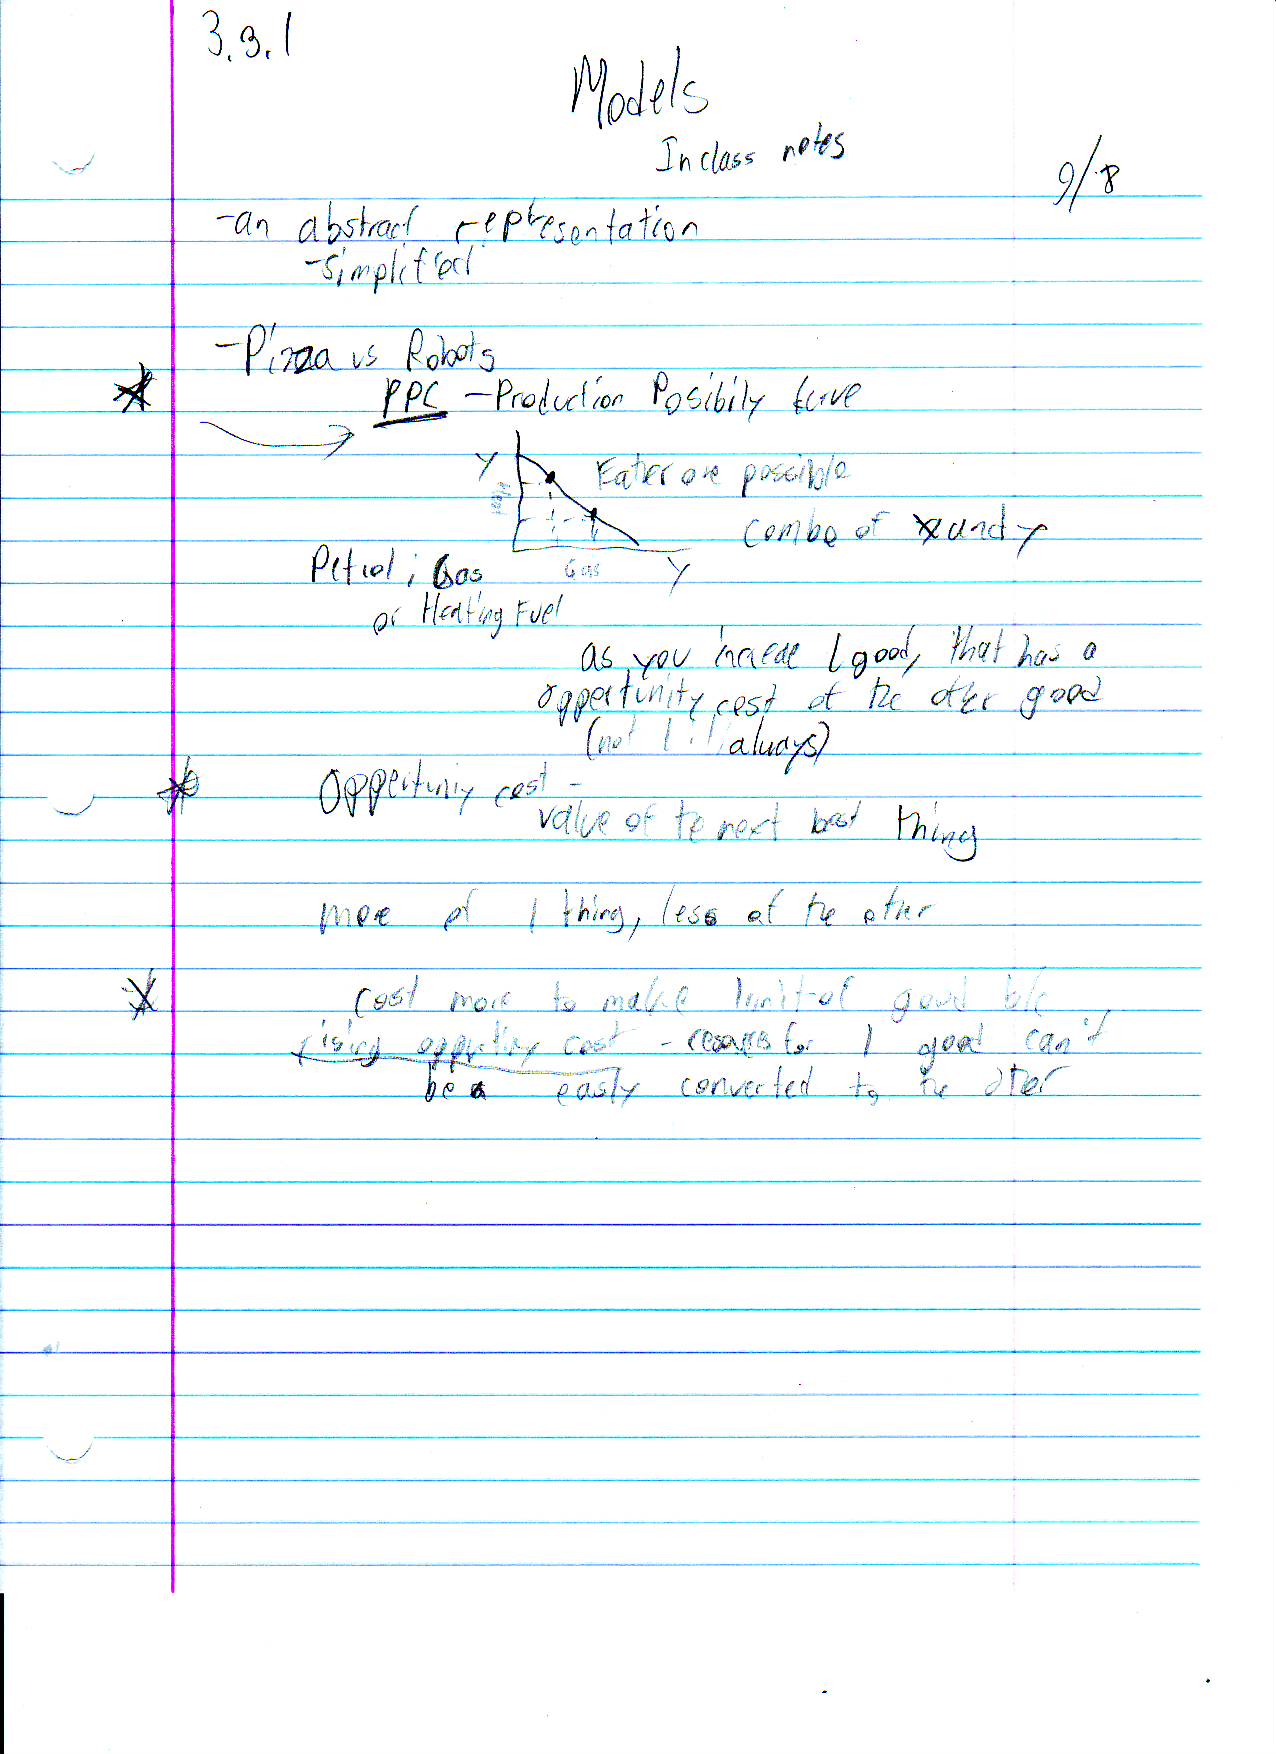 3.3.1
Models
In class notes
9/8
-an abstract representation
-simplified
-Pizza vs Robots
PPC -Production Posibily
Y
possible
combo of x and y
Petrol; Gas
Gas
Y
or Heating Fuel
as you 1 good, that has a
opportunity cost of the other good
(not always)
Oppertuniy cost -
value of te next best thing
more of 1 thing, less of the other
cost more to make 1 unit of good b/c
rising cost - for 1 good can't
be easly converted to the other